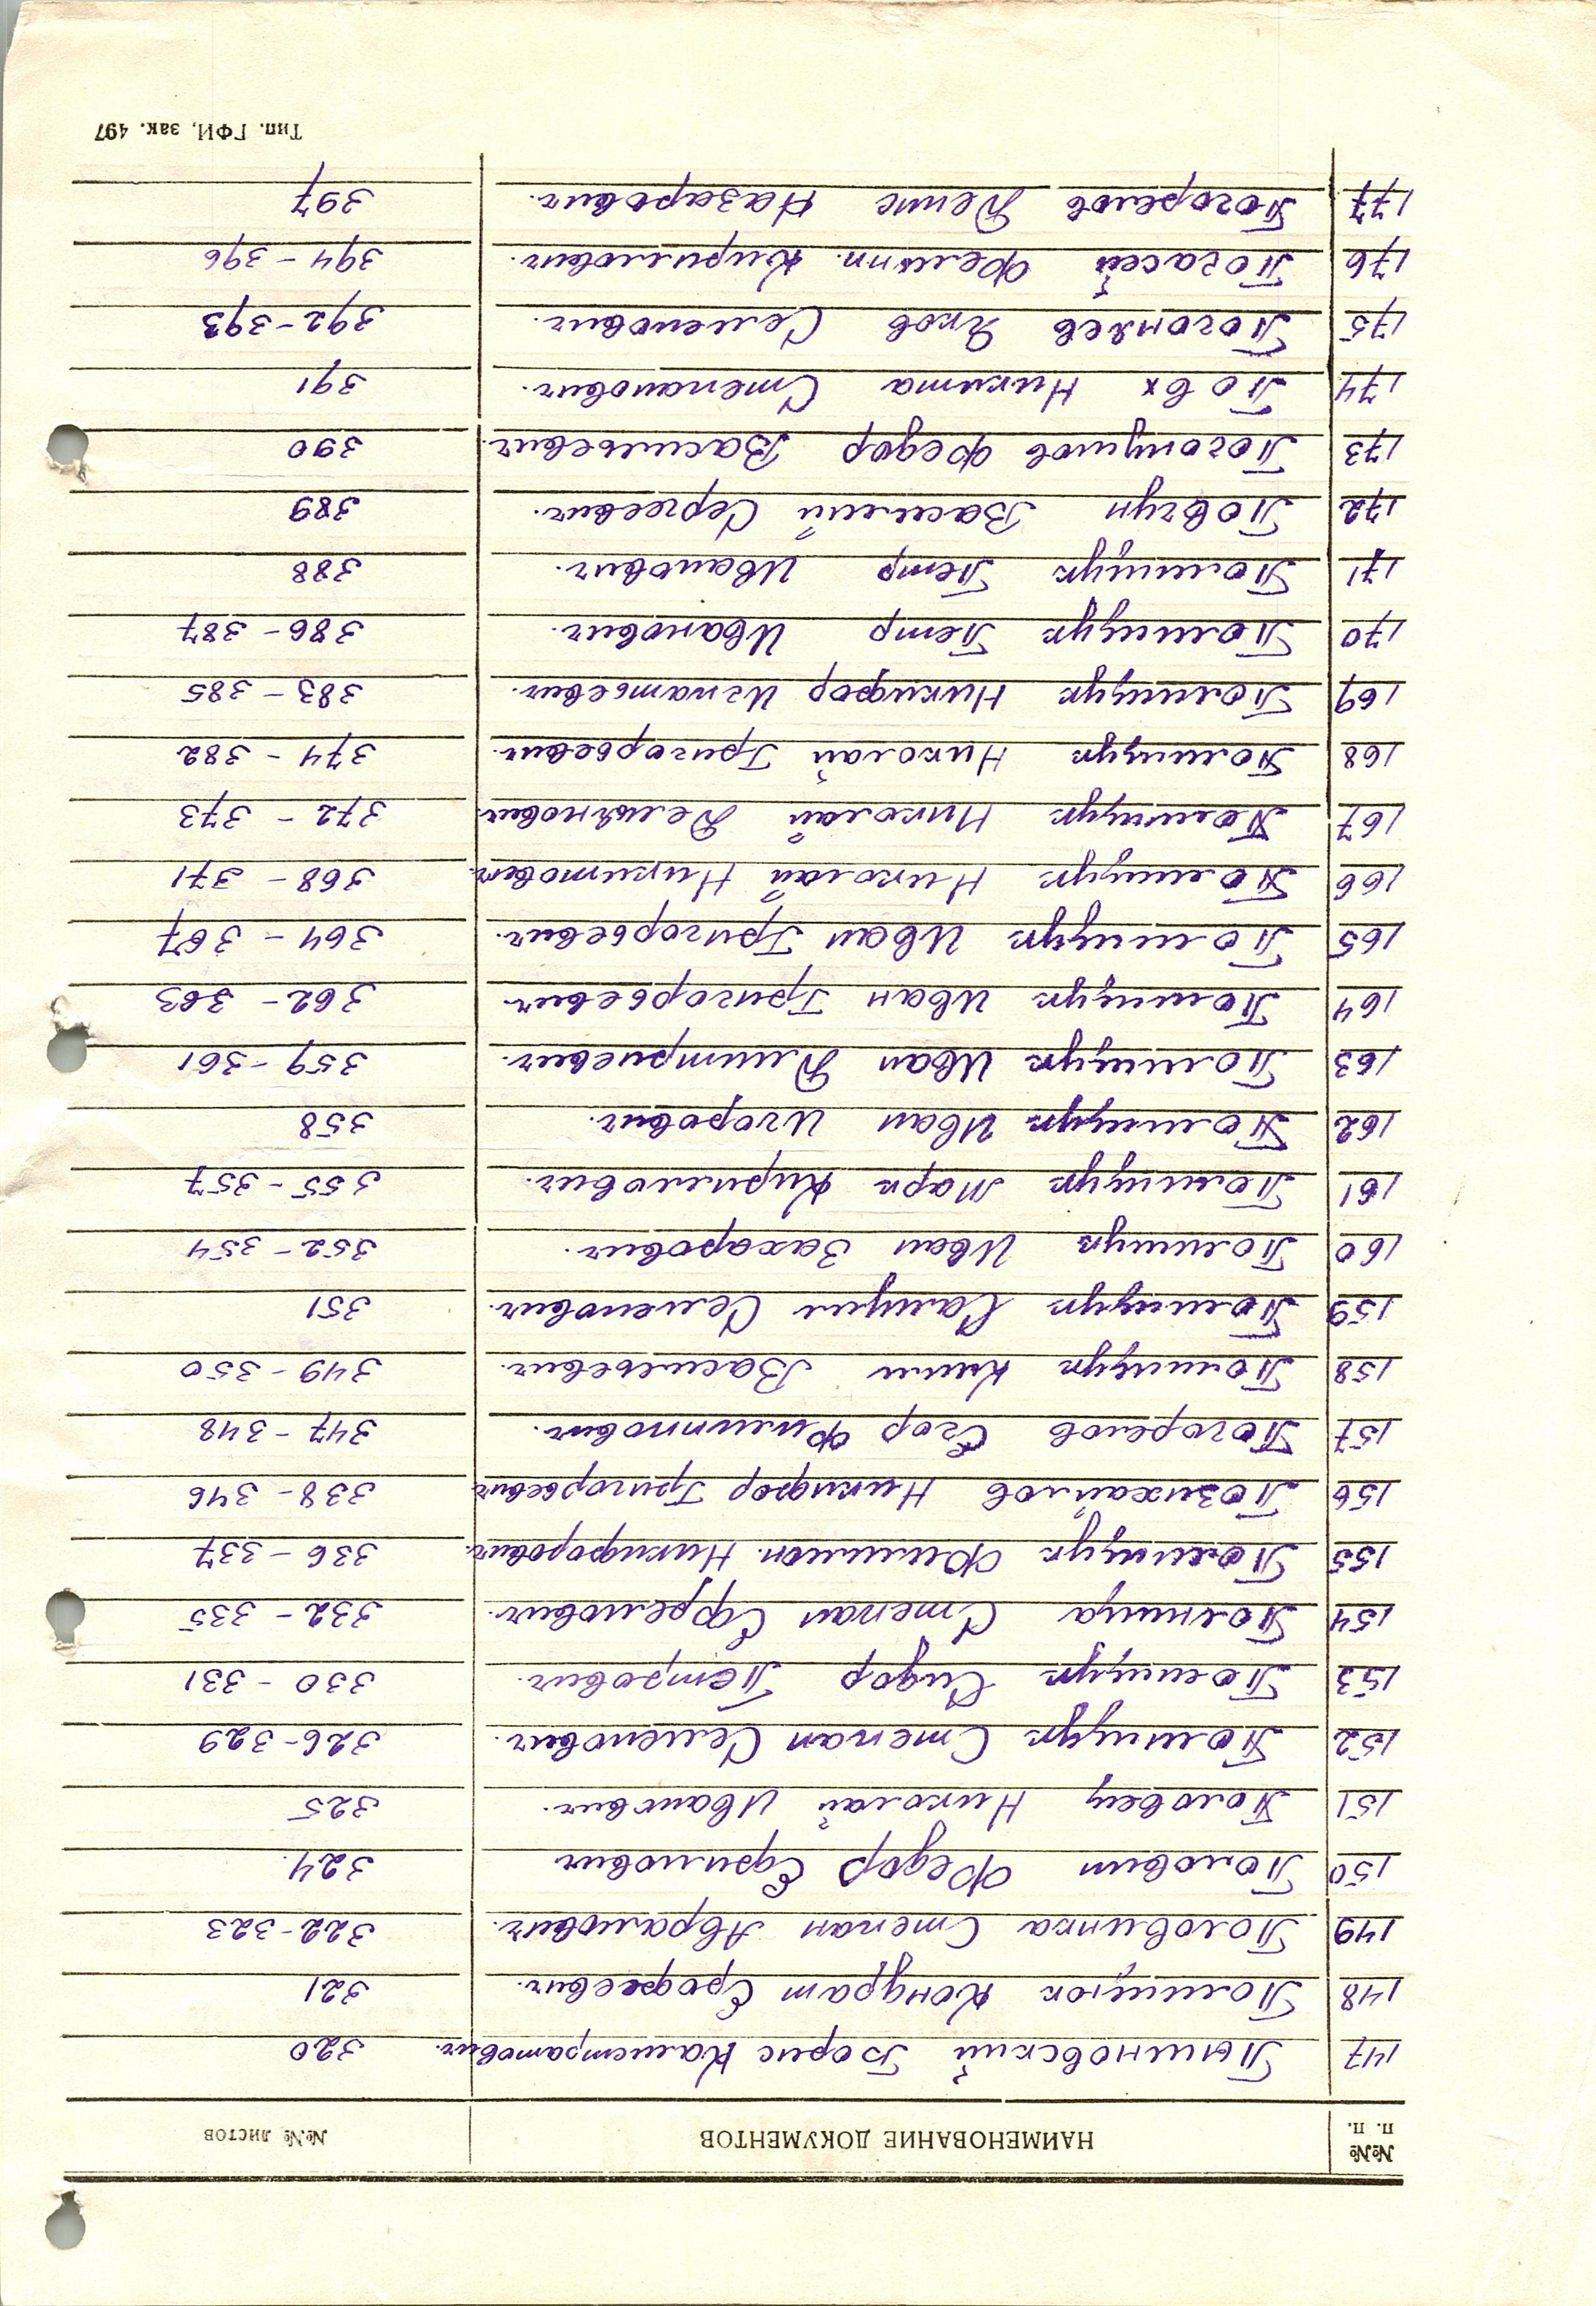 №№ п. п. НАИМЕНОВАНИЕ ДОКУМЕНТОВ №№ листов
147 Пышновский Борис Калистратович. 320
148 Полищюк Кондрат Ерофеевич. 321
149 Половинка Степан Абрамович. 322-323
150 Половин Федор Ефимович 324.
151 Половец Николай Иванович. 325
152 Полищук Степан Семенович. 326-329
153 Полищук Сидор Петрович. 330-331
154 Степан Ефремович. 332-335
155 Полищук Филимон. Никифорович. 336-337
156 Позихайлов Никифор Григорьевич 338-346
157 Погорелов Егор Филиппович. 347-348
158 Полищук Клим Васильевич. 349-350
159 Полищук Самуил Семенович. 351
160 Полищук Иван Захарович. 352-354
161 Полищук Марк Кирилович. 355-357
162 Полищук Иван Игорович. 358
163 Полищук Иван Дмитриевич. 359-361
164 Полищук Иван Григорьевич. 362-363
165 Полищук Иван Григорьевич. 364-367
166 Полищук Николай Никитович. 368-371
167 Полищук Николай Демянович. 372-373
168 Полищук Николай Григорьевич. 374-382
169 Полищук Никифор Игнатьевич. 383-385
170 Полищук Петр Иванович. 386-387
171 Полищук Петр Иванович. 388
172 Повгун Василий Сергеевич. 389
173 Федор Васильевич. 390
174 Повх Никита Степанович. 391
175 Погоняев Яков Семенович. 392-393
176 Погасей Филипп. Кирилович. 394-396
177 Погорелов Денис Назарович. 397
Тип. ГФИ, зак. 497